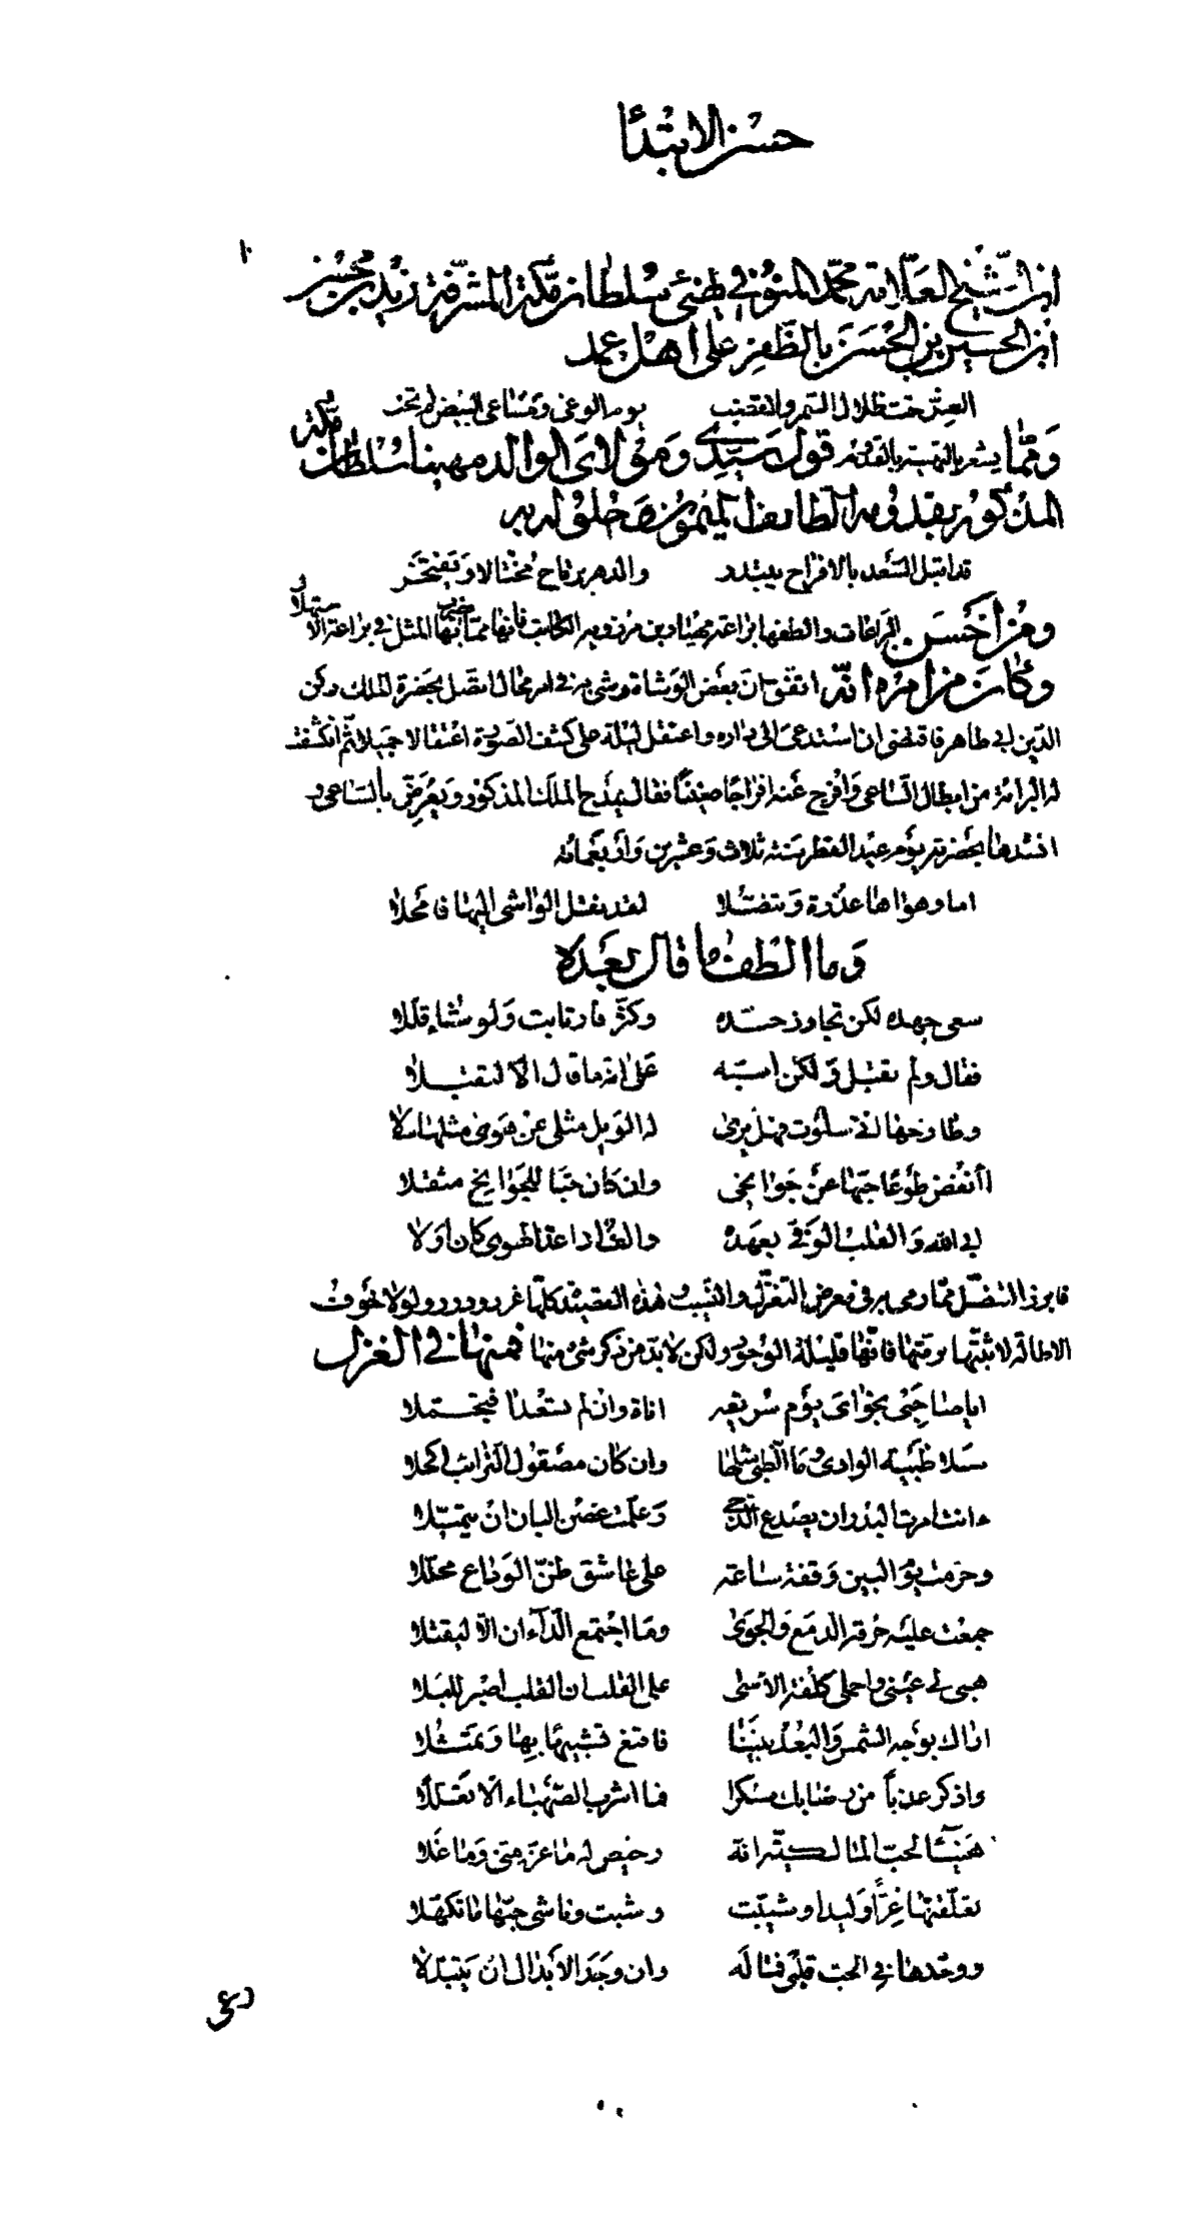 حسن الابتدا
١٠
ابن الشيخ العلامة محمد المنوفي يهني سلطان مكة المشرفة زيد بن محسن
ابن الحسين بن الحسن بالظفر على اهل
العيش تحت ظلال السمر والقضب يوم الوغى ومساعي البيض لم تخب
ومما يشعر بالتهنية بالقدوم قول سيدي ومولاي الوالد مهنيا سلطان مكة
المذكور بقدومه الطايف
قد اقبل السعد بالافراح يبتدر والدهر قد لاح مختالا ويفتخر
ومن احسن البراعات والطفها براعة مهيار بن مرزويه الكاتب فانها مما يضرب بها المثل في براعة الاستهلال
وكان من امره انه اتفق ان بعض الوشاة وشى به في امر محال اتصل بحضرة الملك ركن
الدين ابي طاهر فاقتضى ان استدعى الى داره واعتقل ليلة على كشف الصورة اعتقالا جميلا ثم انكشفت
له البراءة من ابطال الساعي وافرج عنه افراجا فقال يمدح الملك المذكور ويعرض بالساعي و
انشدها بحضرته يوم عيد الفطر سنة ثلاث وعشرين واربعمائة
اما وهواها عذرة وتنصلا لقد نقل الواشي اليها فامحلا
وما الطف ما قال بعده
سعى جهده لكن تجاوز حده وكثر فارتابت ولو شاء قللا
فقال ولم نقبل ولكن على انه ما قال الا لنقبلا
وطارحها اني سلوت فهل يرى له الويل مثلي عن هوى مثلها سلا
اانفض طوعا حبها عن جوانحي وان كان حبا للجوانح مثقلا
ابى الله والقلب الوفي بعهده والف اذا عد الهوى كان اولا
فابرز التنصل مما رمي به في معرض التغزل والنسيب وهذه القصيدة كلها غرر ودرر ولولا خوف
الاطالة لاثبتها برمتها فانها قليلة الوجود ولكن لا بد من ذكر شيء منها فمنها في الغزل
ايا صاحبي نجواي يوم سويقة اناة وان لم تسعدا فتجملا
سلا ظبية الوادي وما الظبي مثلها وان كان مصقول الترائب اكحلا
اانت امرت البدر ان يصدع الدجى وعلمت غصن البان ان يتميلا
وحرمت يوم البين وقفة ساعة على عاشق ظن الوداع محللا
جمعت عليه حرقة الدمع والجوى وما اجتمع الداآن الا ليقتلا
هبي لي عيني واحملي كلفة الاسى على القلب ان القلب اصبر للبلا
اراك بوجه الشمس والبعد بيننا فاقنع تشبيها بها وتمثلا
واذكر عذبا من رضابك مسكرا فما اشرب الصهباء الا تعللا
هنيئا لحب المالكية انه رخيص له ما عز مني وما غلا
تعلقتها غرا وليدا وشيبت وشبت وناشي حبها ما تكهلا
ووحدها في الحب قلبي فما له وان وجد الابدال ان يتبدلا